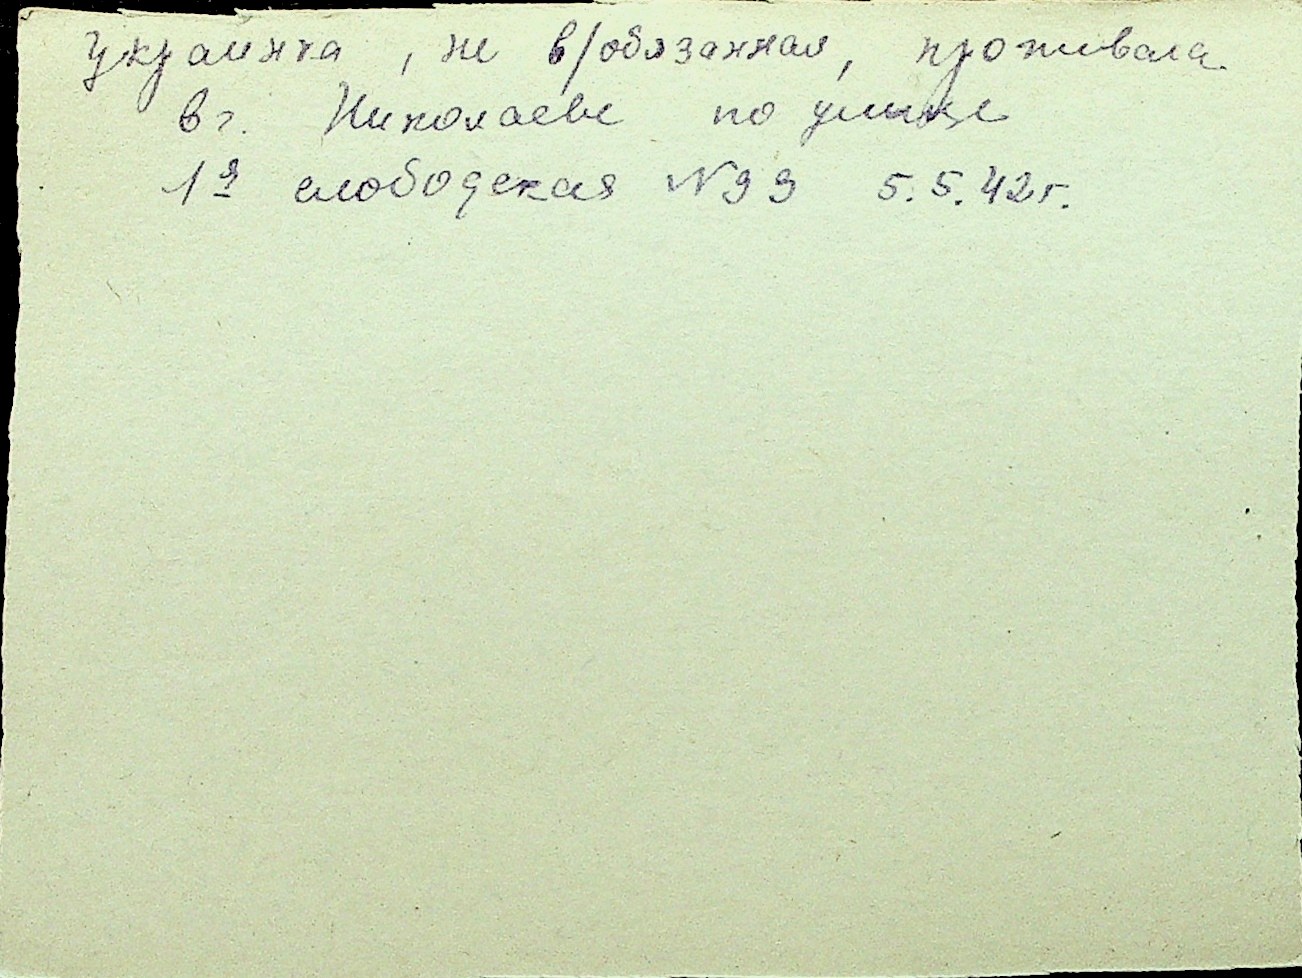 украинка, не в/обязанная, проживала
в г. Николаеве по улице
1я слободская №99 5.5.42г.